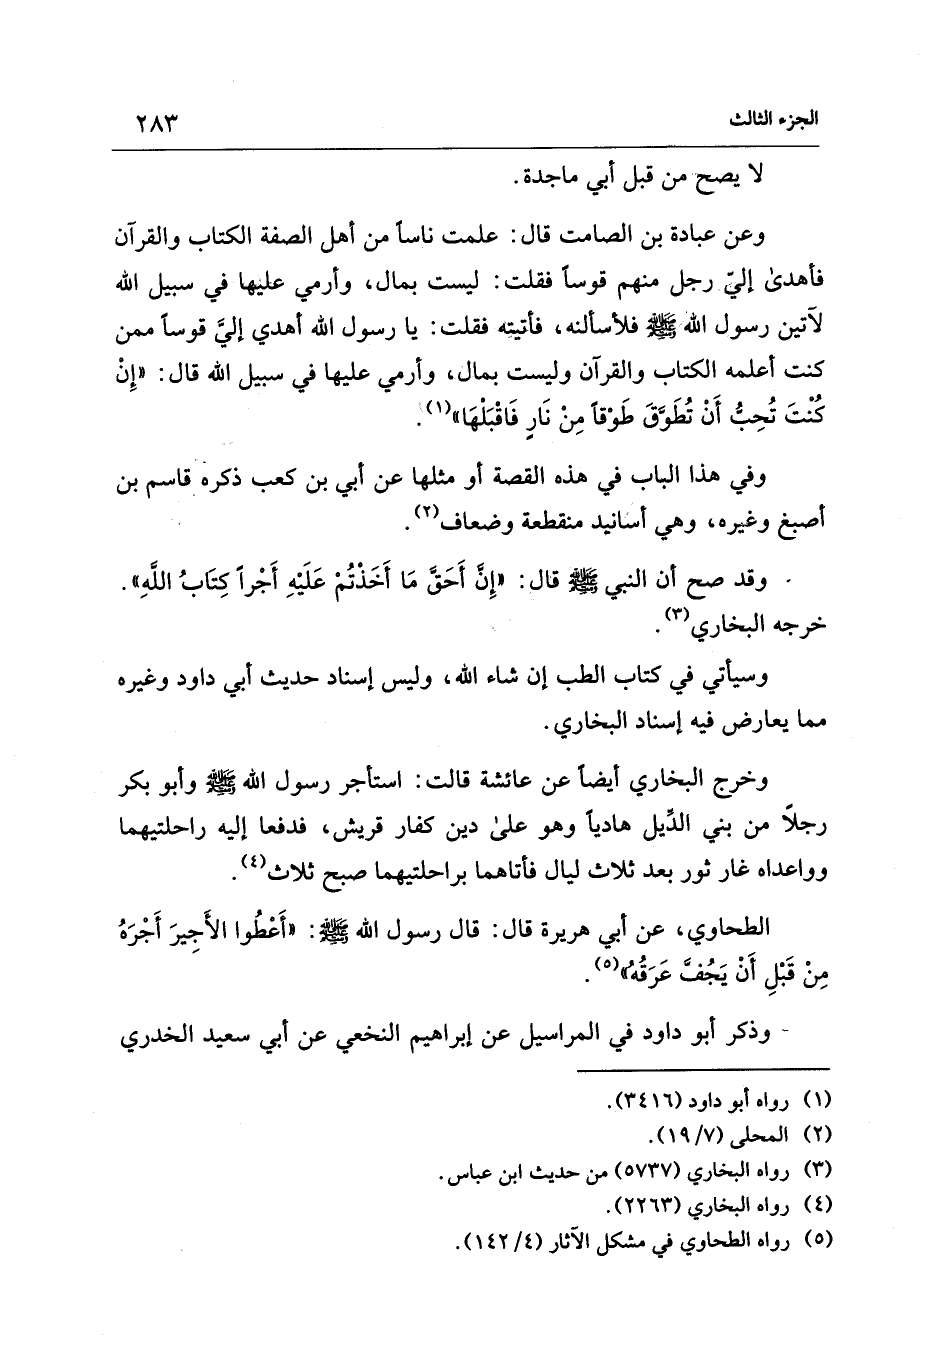 الجزء الثالث ٢٨٣
لا يصح من قبل أبي ماجدة.
وعن عبادة بن الصامت قال: علمت ناساً من أهل الصفة الكتاب والقرآن
فأهدىٰ إليّ رجل منهم قوساً فقلت: ليست بمال، وأرمي عليها في سبيل الله
لآتين رسول الله ﷺ فلأسألنه، فأتيته فقلت: يا رسول الله أهدي إليَّ قوساً ممن
كنت أعلمه الكتاب والقرآن وليست بمال، وأرمي عليها في سبيل الله قال: «إِنْ
كُنْتَ تُحِبُّ أَنْ تُطَوَّقَ طَوْقاً مِنْ نَارٍ فَاقْبَلْهَا»(١).
وفي هذا الباب في هذه القصة أو مثلها عن أبي بن كعب ذكره قاسم بن
أصبغ وغيره، وهي أسانيد منقطعة وضعاف(٢).
وقد صح أن النبي ﷺ قال: «إِنَّ أَحَقَّ مَا أَخَذْتُمْ عَلَيْهِ أَجْراً كِتَابُ اللَّهِ».
خرجه البخاري(٣).
وسيأتي في كتاب الطب إن شاء الله، وليس إسناد حديث أبي داود وغيره
مما يعارض فيه إسناد البخاري.
وخرج البخاري أيضاً عن عائشة قالت: استأجر رسول الله ﷺ وأبو بكر
رجلاً من بني الدِّيل هادياً وهو علىٰ دين كفار قريش، فدفعا إليه راحلتيهما
وواعداه غار ثور بعد ثلاث ليال فأتاهما براحلتيهما صبح ثلاث(٤).
الطحاوي، عن أبي هريرة قال: قال رسول الله ﷺ: «أَعْطُوا الأَجِيرَ أَجْرَهُ
مِنْ قَبْلِ أَنْ يَجُفَّ عَرَقُهُ»(٥).
- وذكر أبو داود في المراسيل عن إبراهيم النخعي عن أبي سعيد الخدري
(١) رواه أبو داود (٣٤١٦).
(٢) المحلى (٧/ ١٩).
(٣) رواه البخاري (٥٧٣٧) من حديث ابن عباس.
(٤) رواه البخاري (٢٢٦٣).
(٥) رواه الطحاوي في مشكل الآثار (٤/ ١٤٢).